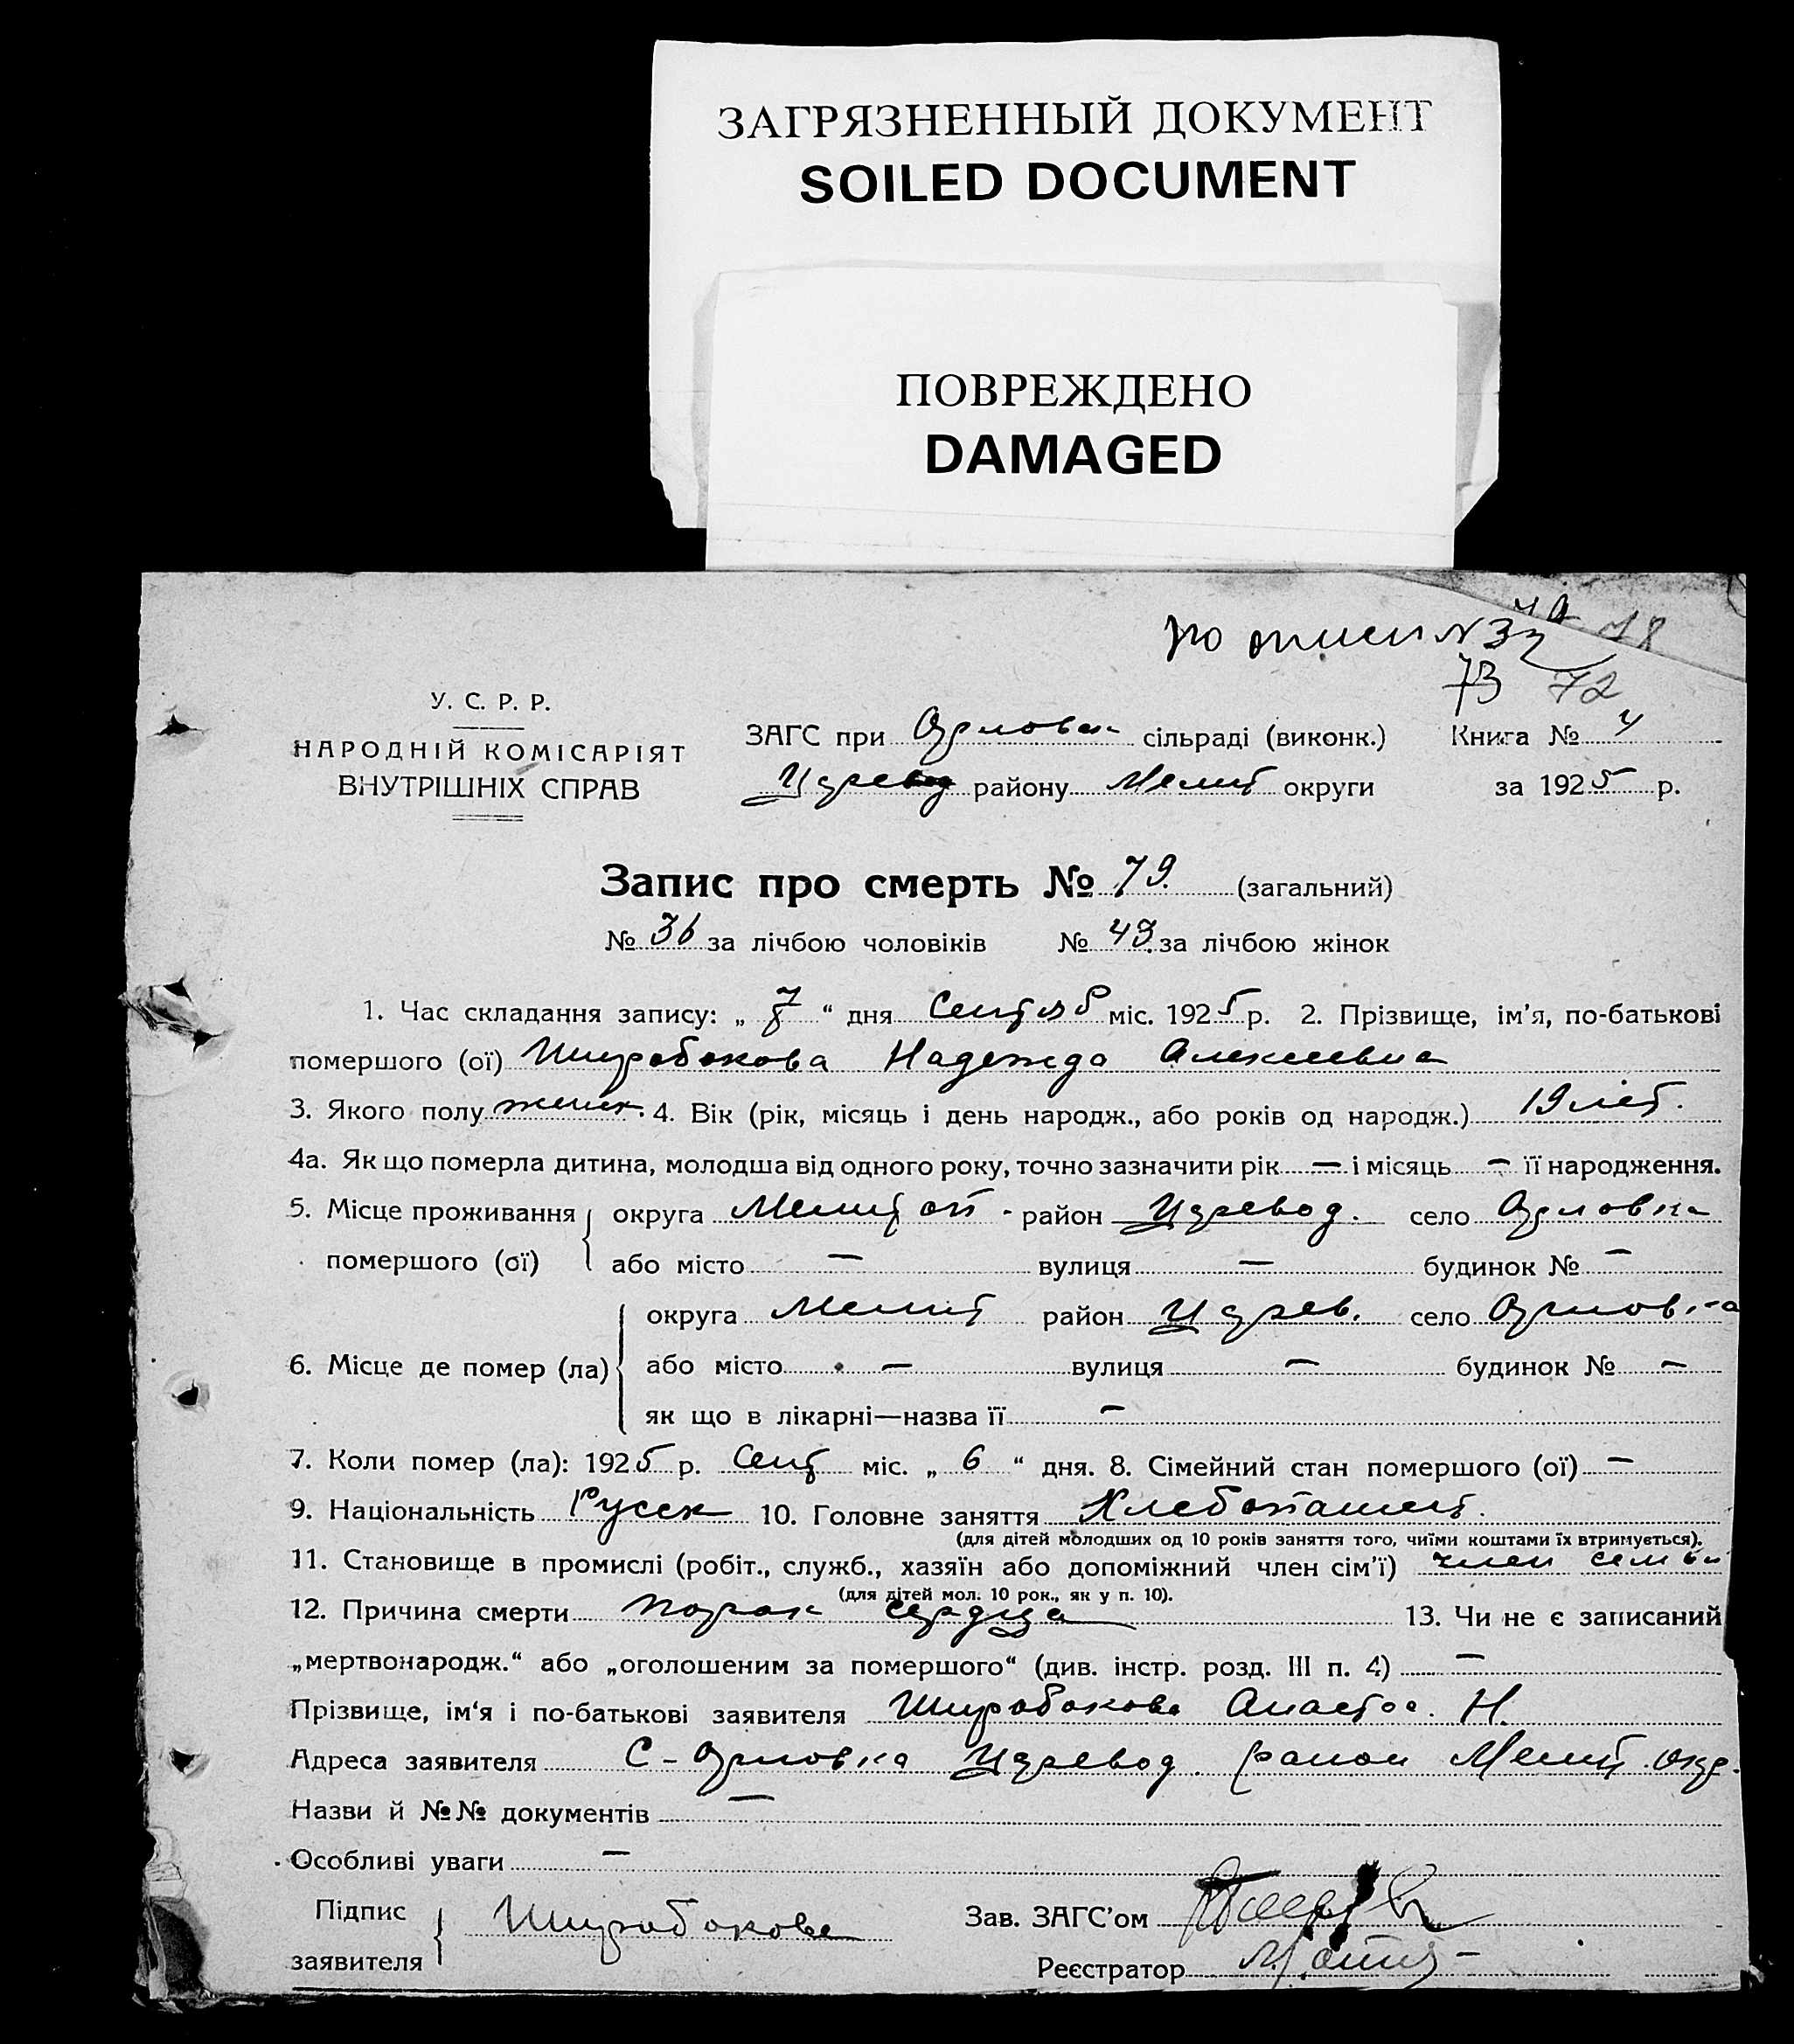 ЗАГРЯЗНЕННЫЙ ДОКУМЕНТ
SOILED DOCUMENT
ПОВРЕЖДЕНО
DAMAGED
по описи N
73 72
У. С. Р. Р.
НАРОДНІЙ КОМІСАРІЯТ
ВНУТРІШНІХ СПРАВ
ЗАГС при Орловск сільраді (виконк.) Книга № 4
Царевод району Мелит округи за 1925 р.
Запис про смерть № 79. (загальний)
№ 36 за лічбою чоловіків № 43. за лічбою жінок
1. Час складання запису: „ 7 “ дня Сентяб міс. 1925 р. 2. Прізвище, ім'я, по-батькові
помершого (ої) Широбокова Надежда Алексеевна
3. Якого полу женск. 4. Вік (рік, місяць і день народж., або років од народж.) 19 лет.
4а. Як що померла дитина, молодша від одного року, точно зазначити рік — і місяць — її народження.
5. Місце проживання округа Мелитоп - район Царевод. село Орловка
помершого (ої) або місто — вулиця — будинок № —
округа Мелит район Царев. село Орловка
6. Місце де помер (ла) або місто — вулиця — будинок № —
як що в лікарні—назва її —
7. Коли помер (ла): 1925 р. Сент міс. „ 6 “ дня. 8. Сімейний стан помершого (ої) —
9. Національність Русск 10. Головне заняття Хлебопашест.
(для дітей молодших од 10 років заняття того, чиїми коштами їх втримується).
11. Становище в промислі (робіт., служб., хазяїн або допоміжний член сім'ї) член семьи
(для дітей мол. 10 рок., як у п. 10).
12. Причина смерти порок сердца 13. Чи не є записаний
„мертвонародж.“ або „оголошеним за помершого“ (див. інстр. розд. III п. 4) —
Прізвище, ім'я і по-батькові заявителя Широбокова Анастас. Н.
Адреса заявителя С - Орловка Царевод. район Мелит. окр.
Назви й №№ документів —
Особливі уваги —
Підпис
заявителя Широбокова
Зав. ЗАГС'ом
Реєстратор